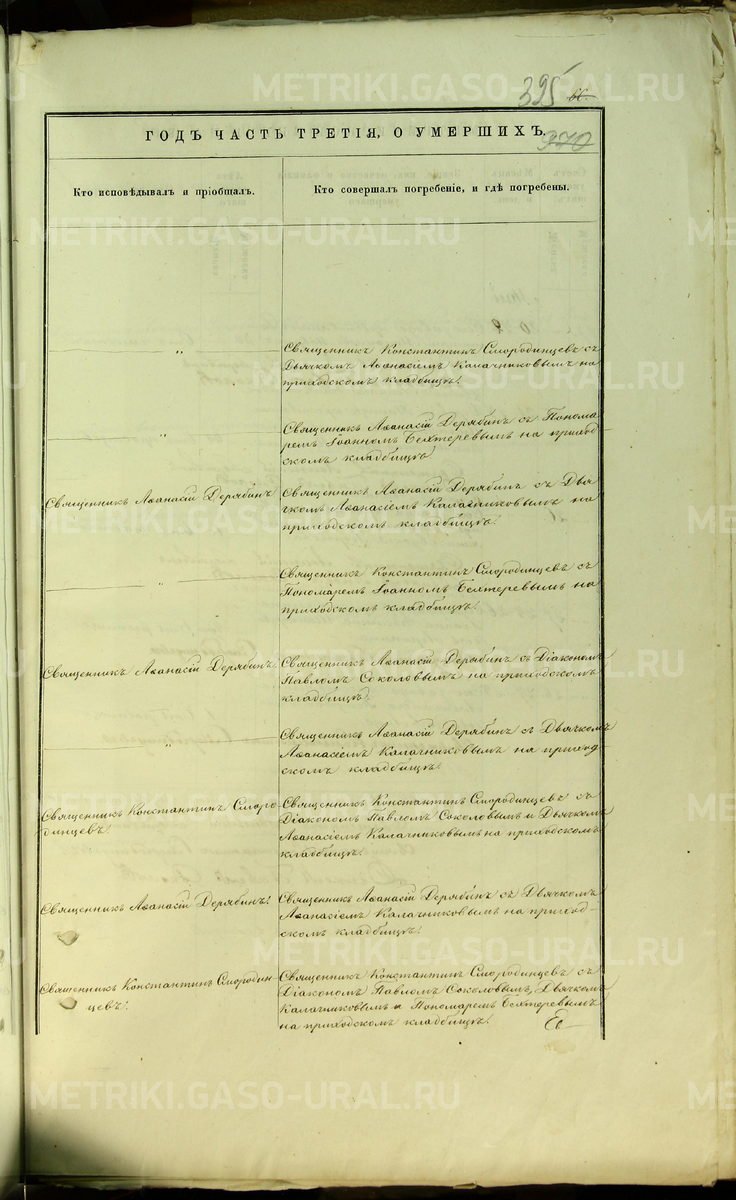 METRIKI.GASO-URAL.RU
395
370
ГОДЪ ЧАСТЬ ТРЕТІЯ, О УМЕРШИХЪ.
Кто исповѣдывалъ и пріобщалъ.
Кто совершалъ погребеніе, и гдѣ погребены.
Священникъ Константинъ Смородинцевъ съ
Дьячкомъ Аѳанасіемъ Калачниковымъ на
приходскомъ кладбищѣ.
Священникъ Аѳанасій Дерябинъ съ Понома
ремъ Іоанномъ Бехтеревымъ на приход
скомъ кладбищѣ
Священникъ Аѳанасій Дерябинъ
Священникъ Аѳанасій Дерябинъ съ Дья
чкомъ Аѳанасіемъ Калачниковымъ на
приходскомъ кладбищѣ.
Священникъ Константинъ Смородинцевъ съ
Пономаремъ Іоанномъ Бехтеревымъ на
приходскомъ кладбищѣ.
Священникъ Аѳанасій Дерябинъ.
Священникъ Аѳанасій Дерябинъ съ Діакономъ
Павломъ Соколовымъ на приходскомъ
кладбищѣ.
Священникъ Аѳанасій Дерябинъ съ Дьячкомъ
Аѳанасіемъ Калачниковымъ на приход
скомъ кладбищѣ.
Священникъ Константинъ Сморо-
динцевъ.
Священникъ Константинъ Смородинцевъ съ
Діакономъ Павломъ Соколовымъ и Дьячкомъ
Аѳанасіемъ Калачниковымъ на приходскомъ
кладбищѣ.
Священникъ Аѳанасій Дерябинъ.
Священникъ Аѳанасій Дерябинъ съ Дьячкомъ
Аѳанасіемъ Калачниковымъ на приход-
скомъ кладбищѣ.
Священникъ Константинъ Смородин-
цевъ.
Священникъ Константинъ Смородинцевъ съ
Діакономъ Павломъ Соколовымъ, Дьячкомъ
Калачниковымъ и Пономаремъ Бехтеревымъ
на приходскомъ кладбищѣ.